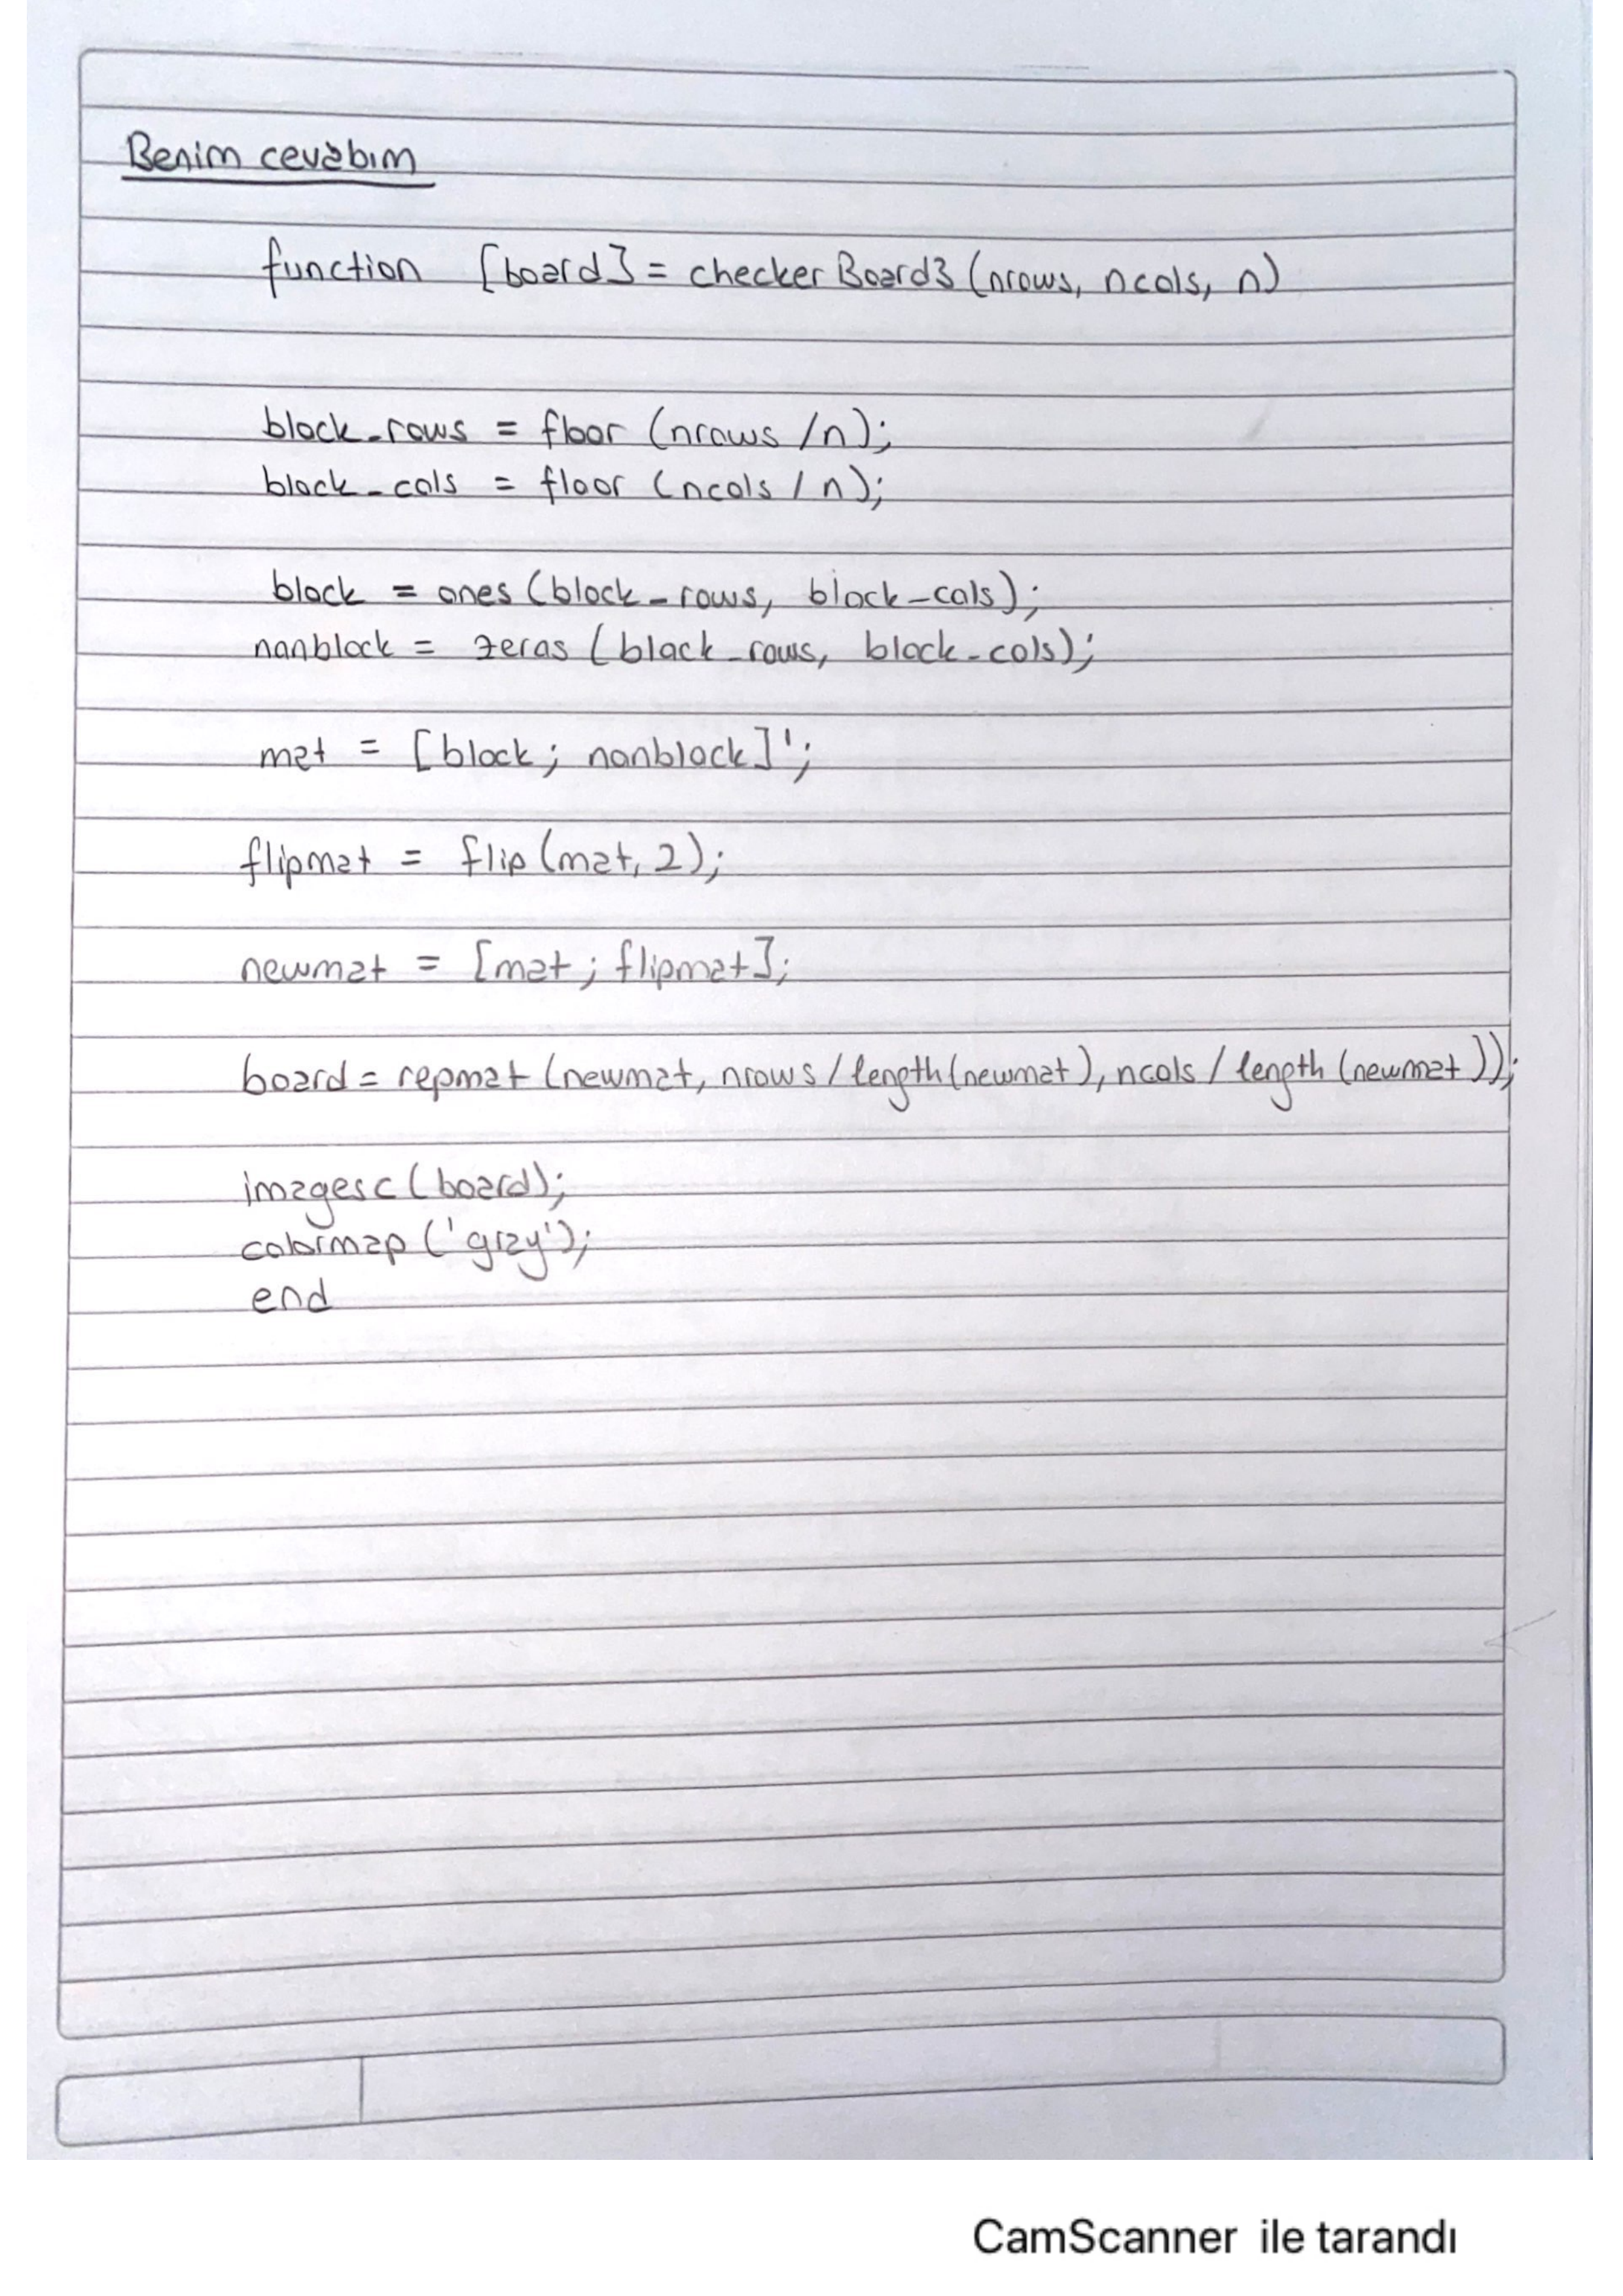 Benim cevabım
function [board] = checkerBoard3 (nrows, ncols, n)
block_rows = floor (nrows /n);
block_cols = floor (ncols / n);
block = ones (block_rows, block_cols);
nonblock = zeros (block_rows, block_cols);
mat = [block; nonblock]';
flipmat = flip (mat, 2);
newmat = [mat ; flipmat];
board = repmat (newmat, nrows / length (newmat), ncols / length (newmat));
imagesc (board);
colormap ('gray');
end
CamScanner ile tarandı